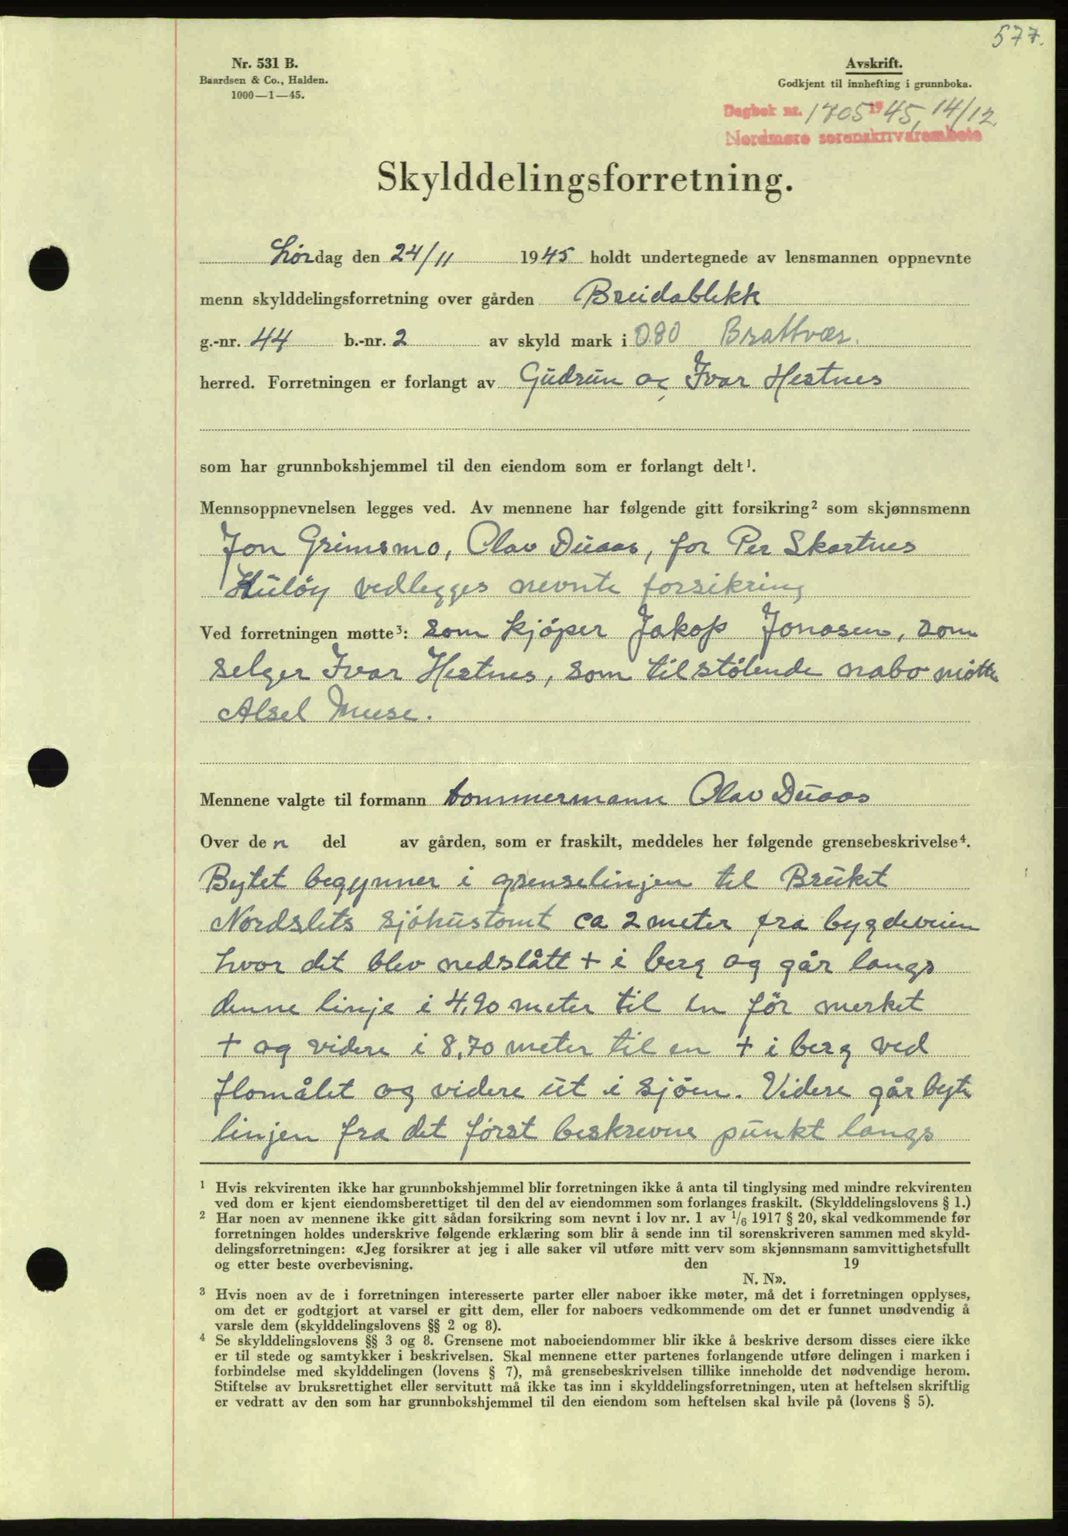 577.
Nr. 531 B.
Baardsen & Co., Halden.
1000—1—45.
Avskrift.
Godkjent til innhefting i grunnboka.
Dagbok nr. 1705 1945, 14/12
Nordmøre sorenskrivarembete
Skylddelingsforretning.
Lørdag den 24/11 1945 holdt undertegnede av lensmannen oppnevnte
menn skylddelingsforretning over gården Breidablikk
g.-nr. 44 b.-nr. 2 av skyld mark i 0.80 Brattvær.
herred. Forretningen er forlangt av Gudrun og Ivar Hestnes
som har grunnbokshjemmel til den eiendom som er forlangt delt¹.
Mennsoppnevnelsen legges ved. Av mennene har følgende gitt forsikring² som skjønnsmenn
Jon Grimsmo, Olav Duaas, for Per Skartnes
Huløy vedlegges nevnte forsikring
Ved forretningen møtte³: som kjøper Jakop Jonasen, som
selger Ivar Hestnes, som tilstøtende nabo møtte
Alsel
Mennene valgte til formann tømmermann Olav Duaas
Over den del av gården, som er fraskilt, meddeles her følgende grensebeskrivelse⁴.
Bytet begynner i grenselinjen til Bruket
Nordslets sjøhustomt ca 2 meter fra bygdeveien
hvor det blev nedslått + i berg og går langs
denne linje i 4,20 meter til en før merket
+ og videre i 8,70 meter til en + i berg ved
flomålet og videre ut i sjøen. Videre går byte
linjen fra det først beskrevne punkt langs
¹ Hvis rekvirenten ikke har grunnbokshjemmel blir forretningen ikke å anta til tinglysing med mindre rekvirenten
ved dom er kjent eiendomsberettiget til den del av eiendommen som forlanges fraskilt. (Skylddelingslovens § 1.)
² Har noen av mennene ikke gitt sådan forsikring som nevnt i lov nr. 1 av 1/6 1917 § 20, skal vedkommende før
forretningen holdes underskrive følgende erklæring som blir å sende inn til sorenskriveren sammen med skyld-
delingsforretningen: «Jeg forsikrer at jeg i alle saker vil utføre mitt verv som skjønnsmann samvittighetsfullt
og etter beste overbevisning. den 19
N. N».
³ Hvis noen av de i forretningen interesserte parter eller naboer ikke møter, må det i forretningen opplyses,
om det er godtgjort at varsel er gitt dem, eller for naboers vedkommende om det er funnet unødvendig å
varsle dem (skylddelingslovens §§ 2 og 8).
⁴ Se skylddelingslovens §§ 3 og 8. Grensene mot naboeiendommer blir ikke å beskrive dersom disses eiere ikke
er til stede og samtykker i beskrivelsen. Skal mennene etter partenes forlangende utføre delingen i marken i
forbindelse med skylddelingen (lovens § 7), må grensebeskrivelsen tillike inneholde det nødvendige herom.
Stiftelse av bruksrettighet eller servitutt må ikke tas inn i skylddelingsforretningen, uten at heftelsen skriftlig
er vedratt av den som har grunnbokshjemmel til den eiendom som heftelsen skal hvile på (lovens § 5).